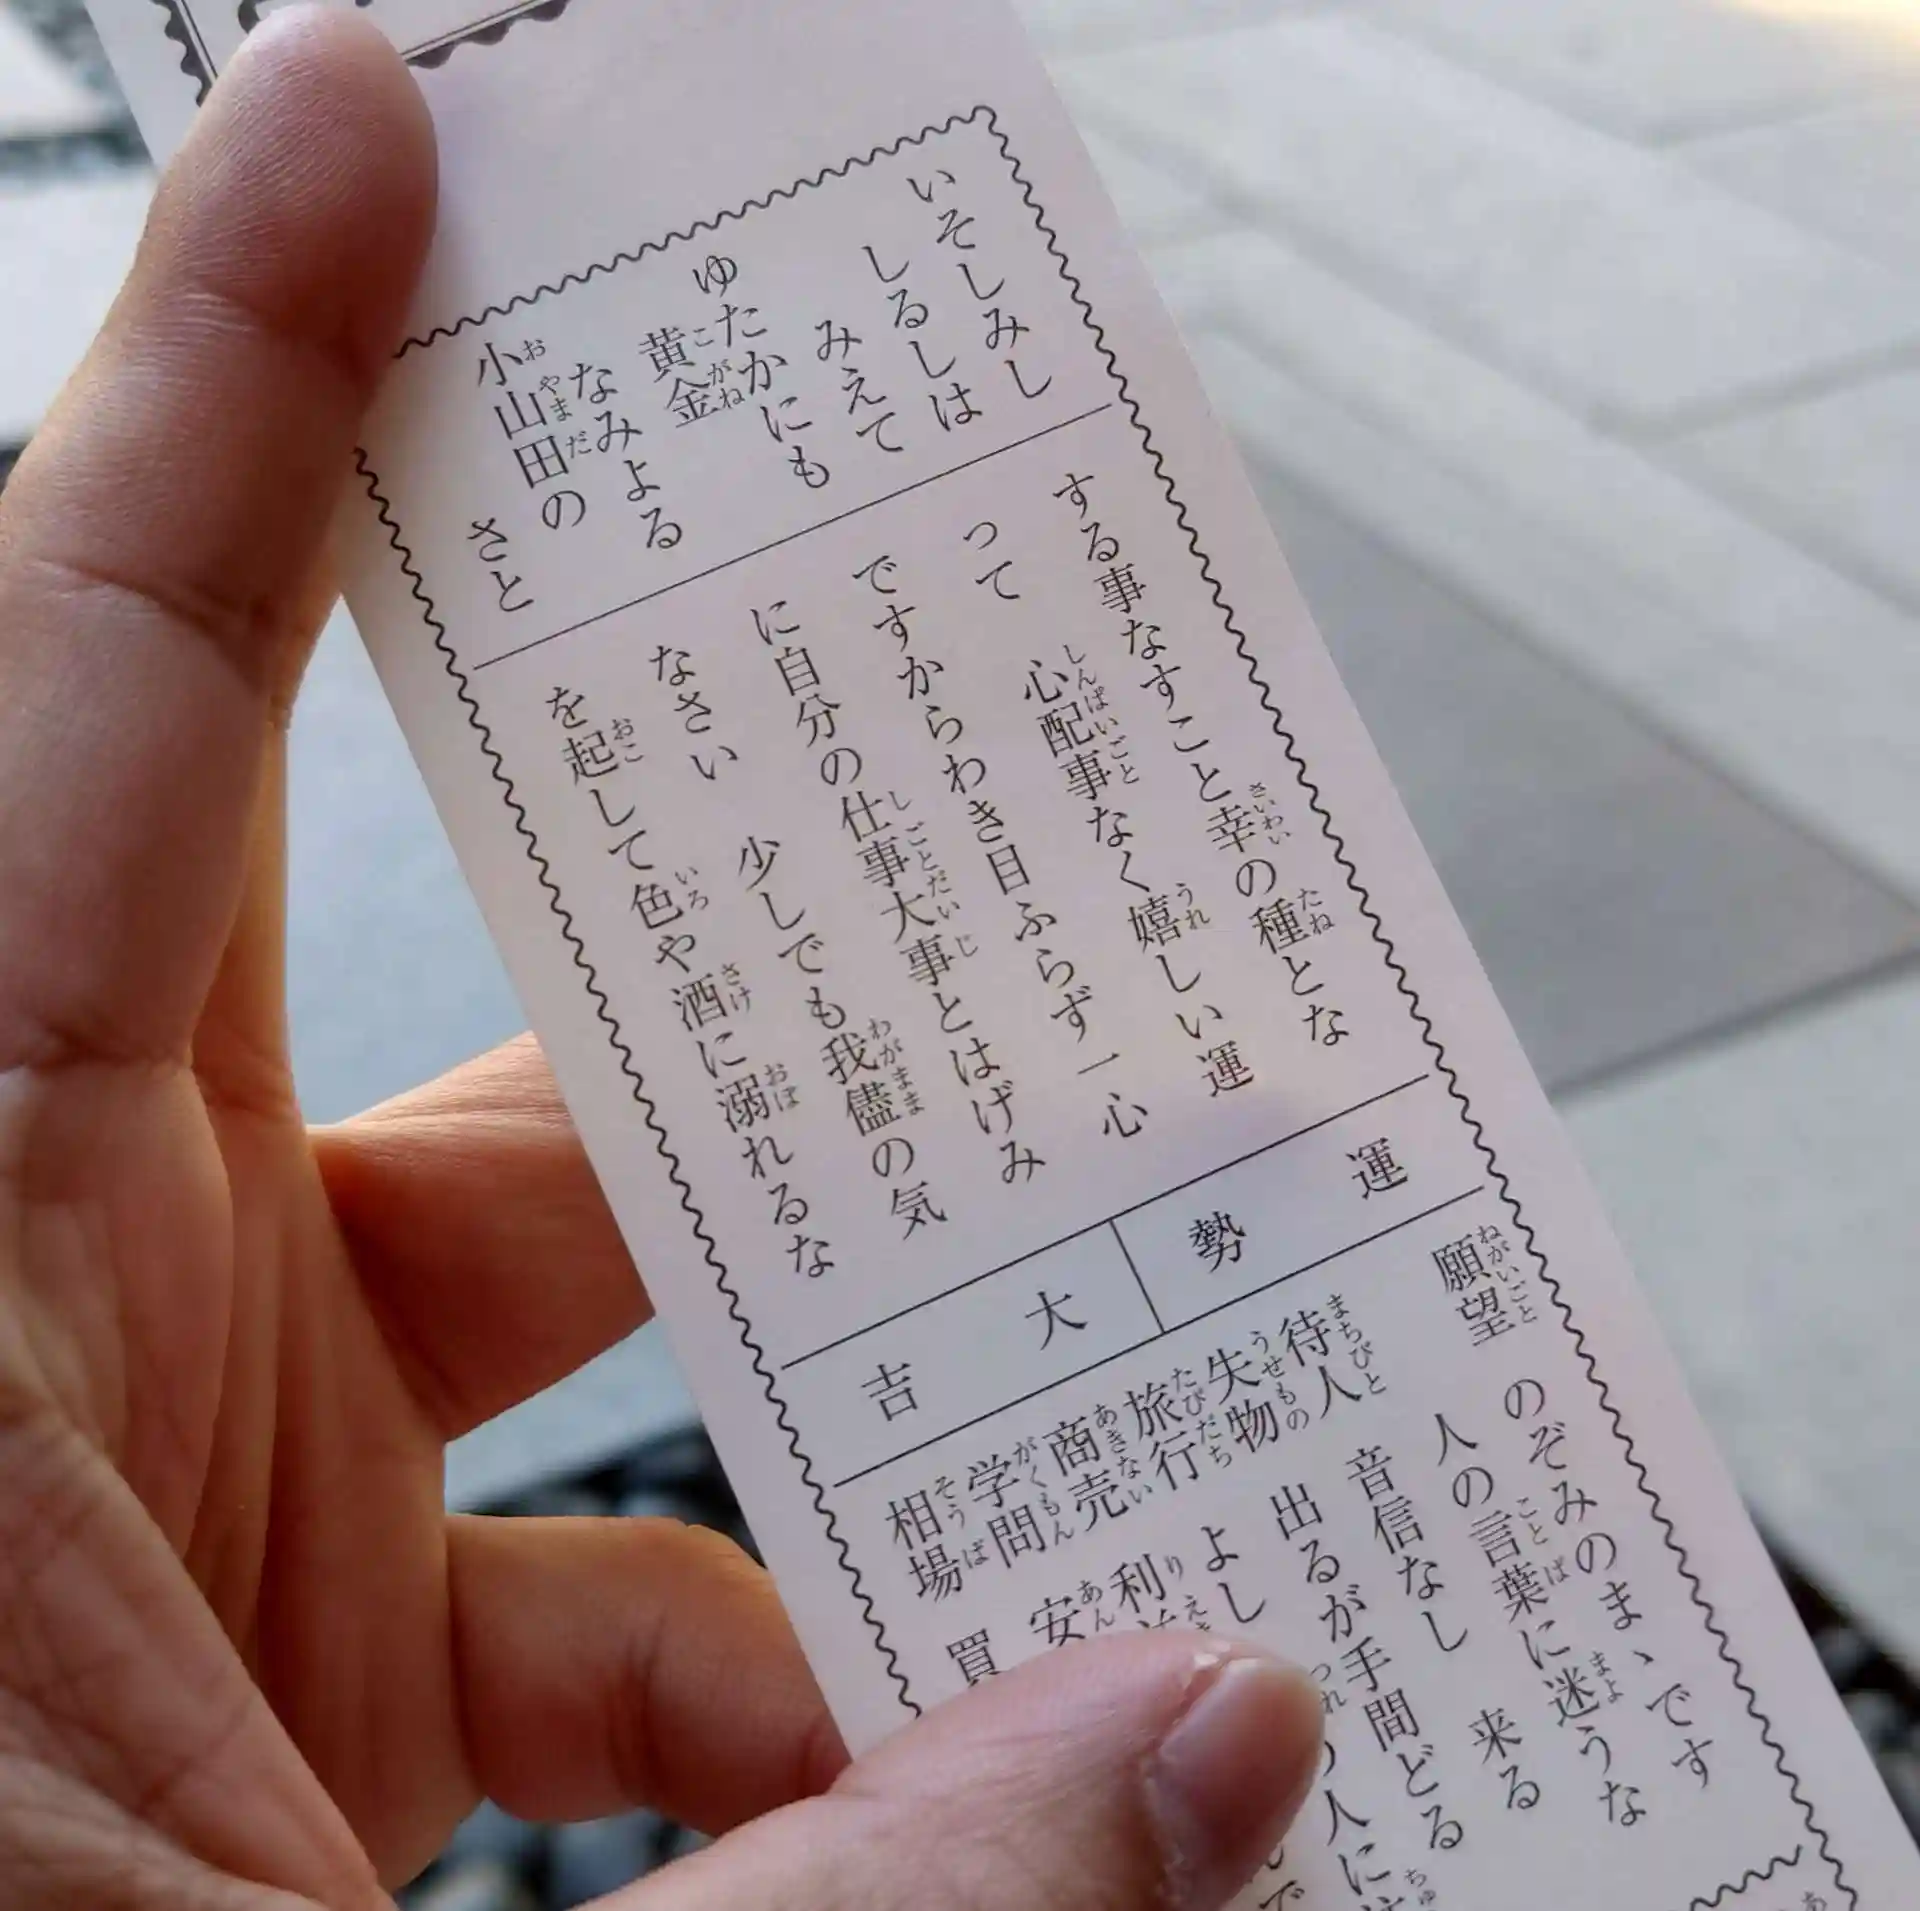 いそしみし
しるしは
みえて
ゆたかにも
黄金
なみよる
小山田の
さと
する事なすこと幸の種とな
って 心配事なく嬉しい運
ですからわき目ふらず一心
に自分の仕事大事とはげみ
なさい 少しでも我儘の気
を起して色や酒に溺れるな
運勢
大吉
願望 のぞみのまゝです
人の言葉に迷うな
待人 音信なし 来る
失物 出るが手間どる
旅行 よし
人に
商売 利
学問 安
相場 買